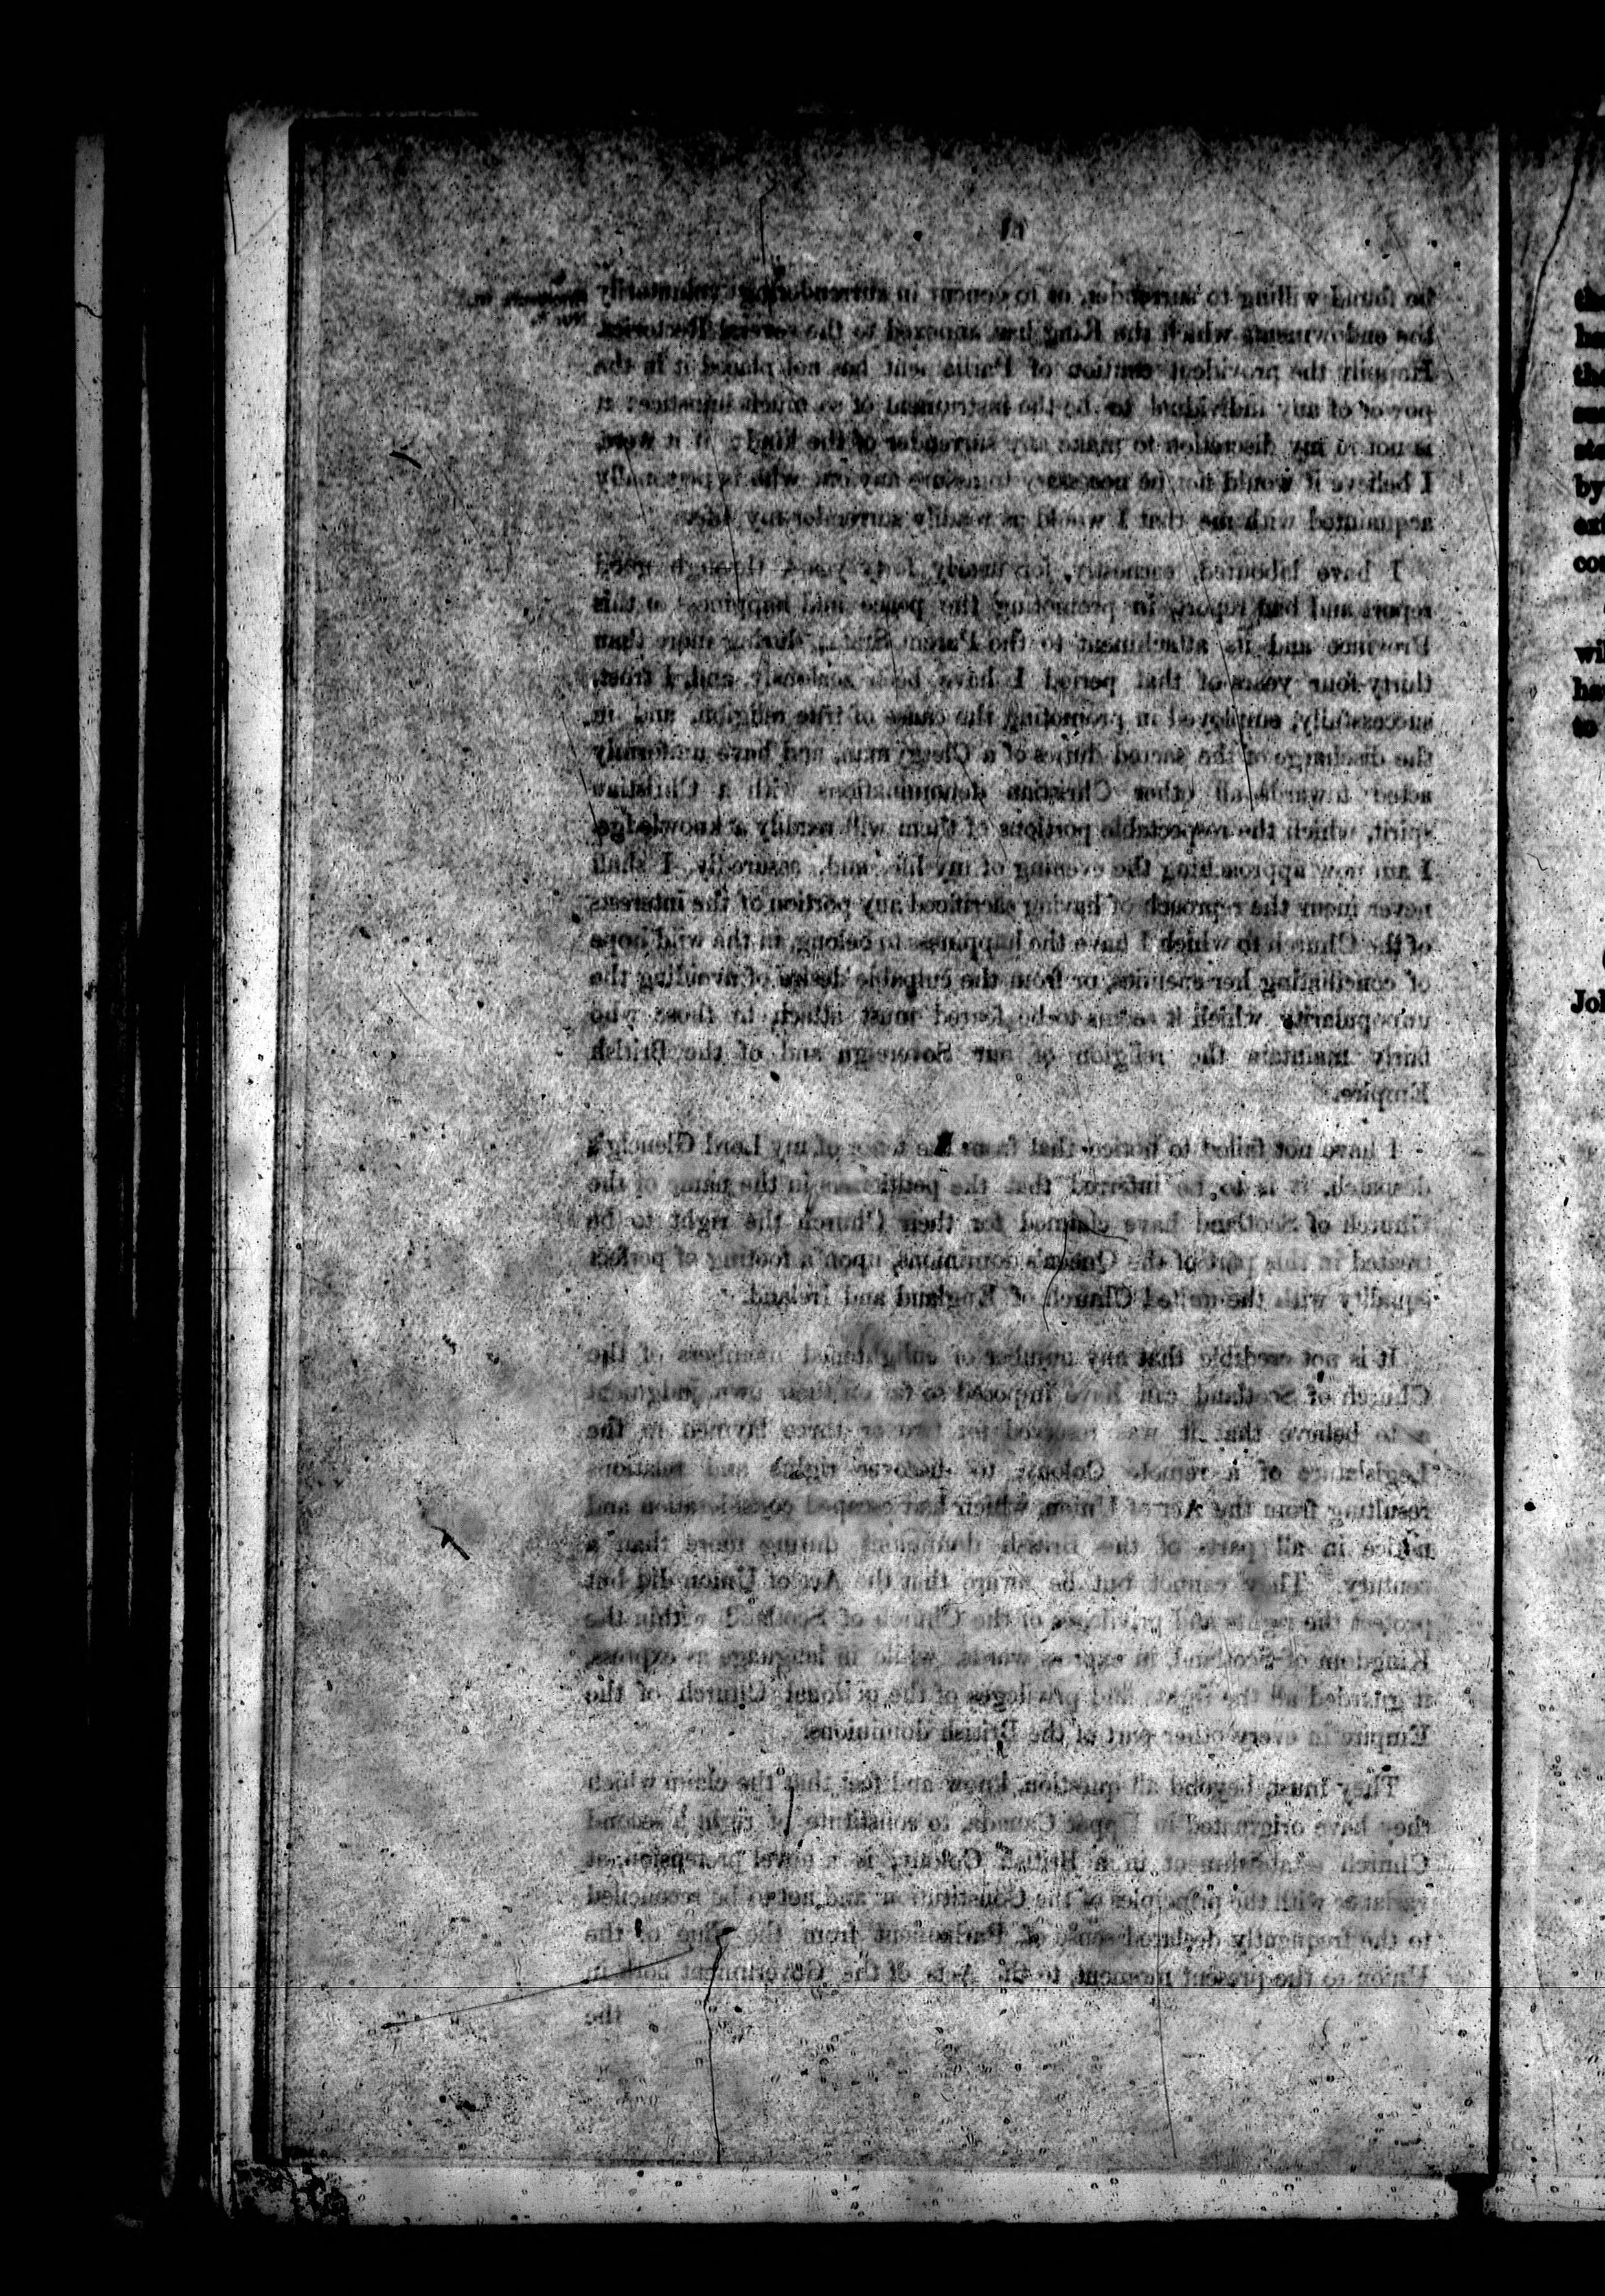 11
be found willing to surrender, or to concur in surrendering voluntarily
the endowments which the King has annexed to the several Rectories.
Happily the provident caution of Parliament has not placed it in the
power of any individual to be the instrument of so much injustice: it
is not in my discretion to make any surrender of the kind; if it were,
I believe it would not be necessary to assure any one who is personally
acquainted with me that I would as readily surrender my life.
I have laboured earnestly, for nearly forty years, through good
report and bad report, in promoting the peace and happiness of this
Province and its attachment to the Parent State; during more than
thirty-four years of that period I have been zealously, and, I trust,
successfully, employed in promoting the cause of true religion, and in
the discharge of the sacred duties of a Clergyman, and have uniformly
acted towards all other Christian denominations with a Christian
spirit, which the respectable portions of them will readily acknowledge.
I am now approaching the evening of my life, and, assuredly, I shall
never incur the reproach of having sacrificed any portion of the interests
of the Church to which I have the happiness to belong, in the wild hope
of conciliating her enemies, or from the culpable desire of avoiding the
unpopularity which it seems to be feared must attach to those who
fairly maintain the religion of our Sovereign and of the British
Empire.
I have not failed to notice that from the tenor of my Lord Glenelg's
despatch, it is to be inferred that the petitioners in the name of the
Church of Scotland have claimed for their Church the right to be
treated in this part of the Queen's dominions, upon a footing of perfect
equality with the united Church of England and Ireland.
It is not credible that any number of enlightened members of the
Church of Scotland can have imposed so far on their own judgment
as to believe that it was reserved for two or three laymen in the
Legislature of a remote Colony, to discover rights and relations
resulting from the Act of Union, which had escaped consideration and
notice in all parts of the British dominions during more than a
century. They cannot but be aware that the Act of Union did but
protect the rights and privileges of the Church of Scotland, within the
Kingdom of Scotland, in express words, while in language as express,
it guarded all the rights and privileges of the national Church of the
Empire in every other part of the British dominions.
They must, beyond all question, know and feel that the claim which
they have originated in Upper Canada, to constitute of right a second
Church establishment in a British Colony, is a novel pretension, at
variance with the principles of the Constitution and not to be reconciled
to the frequently declared sense of Parliament from the time of the
Union to the present moment, to the Acts of the Government both in
the
the
by
wil
to
Joh